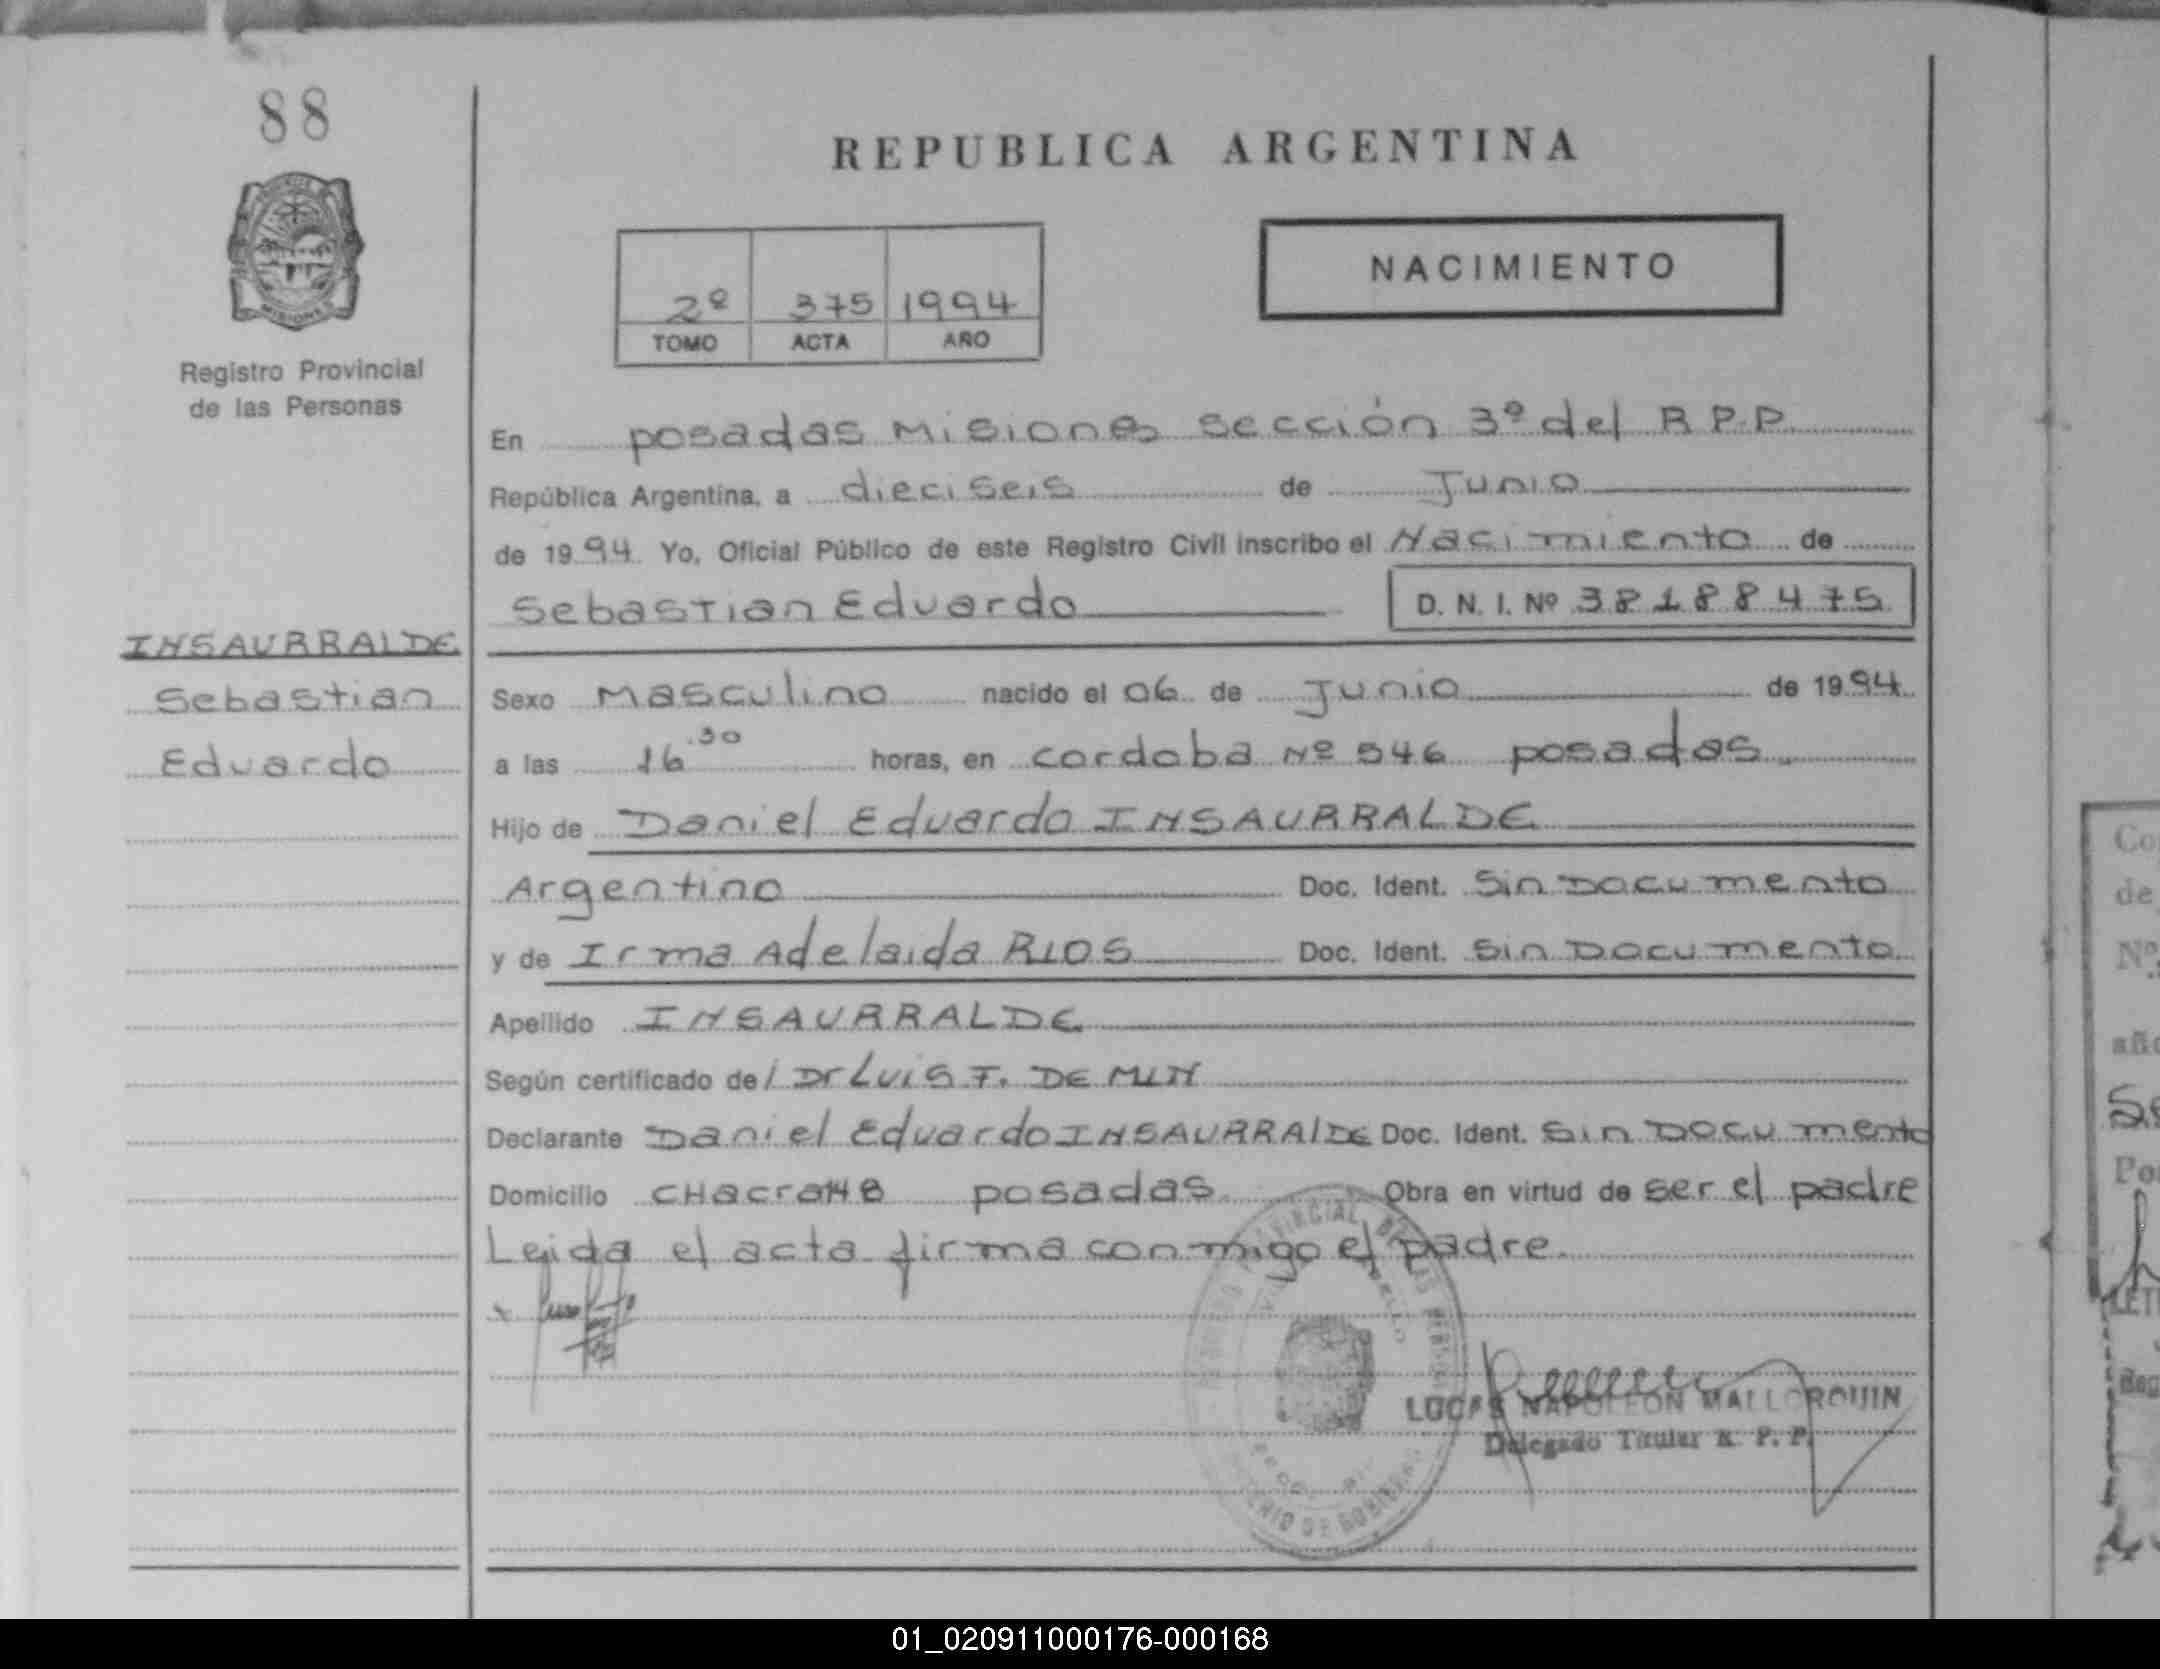 88
REPUBLICA ARGENTINA
NACIMIENTO
2º 375 1994
TOMO ACTA AÑO
Registro Provincial
de las Personas
En posadas Misiones sección 3º del R.P.P.
República Argentina, a dieciseis de Junio
de 1994. Yo, Oficial Público de este Registro Civil inscribo el Nacimiento de
Sebastian Eduardo D. N. I. Nº 38188475
INSAURRALDE
Sebastian
Eduardo
Sexo Masculino nacido el 06 de Junio de 1994
a las 16.30 horas, en cordoba Nº 546 posadas
Hijo de Daniel Eduardo INSAURRALDE
Argentino Doc. Ident. Sin Documento
y de Irma Adelaida RIOS Doc. Ident. Sin Documento
Apellido INSAURRALDE
Según certificado de/ Dr Luis F. DE MIN
Declarante Daniel Eduardo INSAURRAlDE Doc. Ident. Sin Documento
Domicilio CHacra 148 posadas Obra en virtud de ser el padre
Leida el acta firma conmigo el padre
LUCAS NAPOLEON MALLORQUIN
Delegado Titular R. P. P.
MINISTERIO DE GOBIERNO
01_020911000176-000168